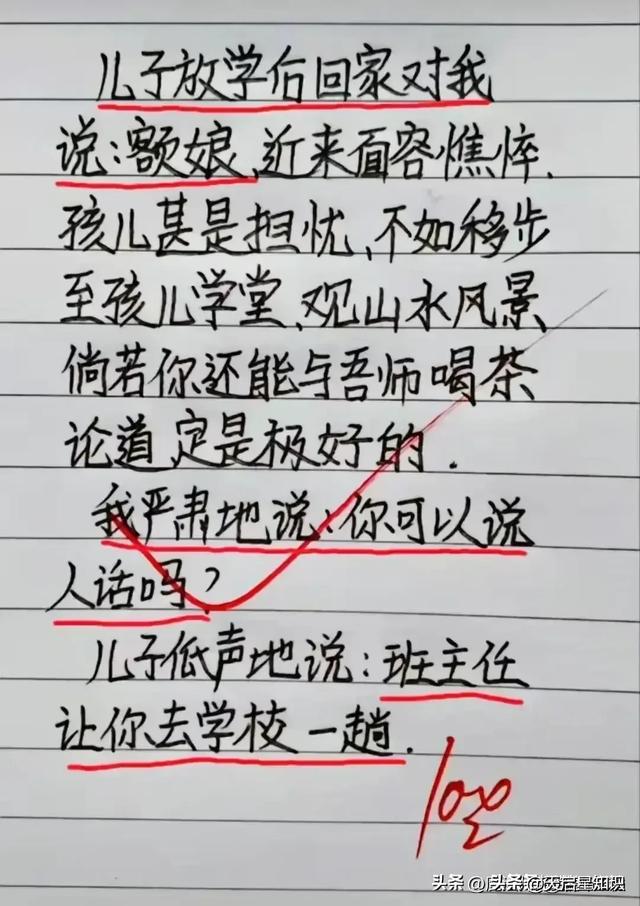 儿子放学后回家对我
说:额娘,近来面容憔悴.
孩儿甚是担忧,不如移步
至孩儿学堂,观山水风景
倘若你还能与吾师喝茶
论道,定是极好的.
我严肃地说:你可以说
人话吗?
儿子低声地说:班主任
让你去学校一趟.
100
头条
头条 @天启星知识